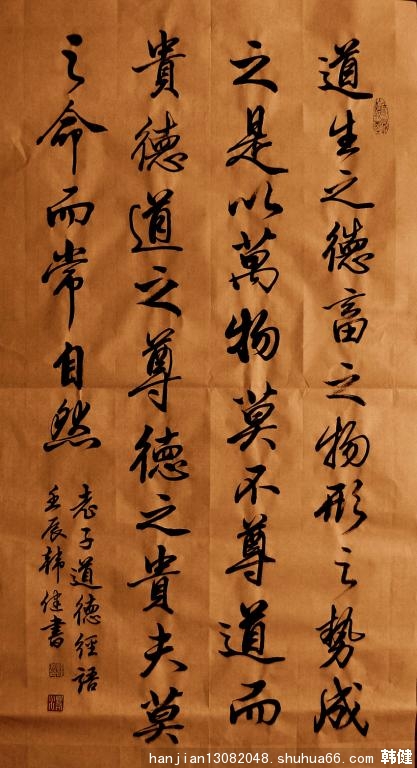 道生之德畜之物形之勢成
之是以萬物莫不尊道而
貴德道之尊德之貴夫莫
之命而常自然
老子道德經語
壬辰韩健書
hanjian13082048.shuhua66.com 韩健